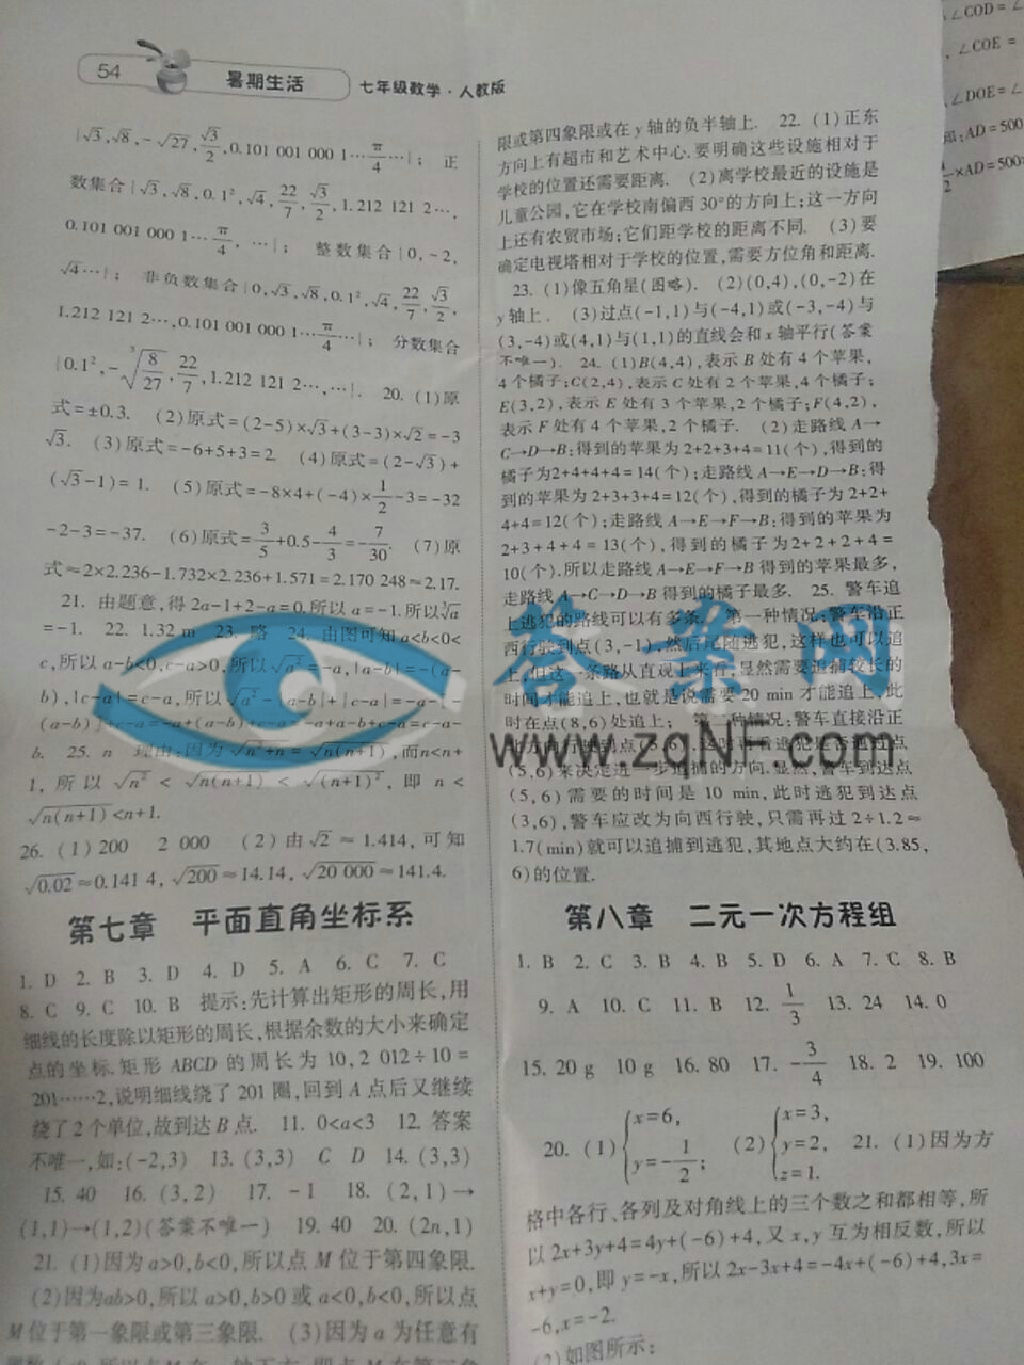 54 暑期生活 七年级数学·人教版
|√3,√8,-√27,√3/2,0.101 001 000 1…π/4…|; 正
数集合|√3,√8,0.1²,√4,22/7,√3/2,1.212 121 2…,
0.101 001 000 1…π/4,…|; 整数集合|0,-2,
√4…|; 非负数集合|0,√3,√8,0.1²,√4,22/7,√3/2,
1.212 121 2…,0.101 001 000 1…π/4…|; 分数集合
|0.1²,-³√8/27,22/7,1.212 121 2…,…|. 20. (1)原
式=±0.3. (2)原式=(2-5)×√3+(3-3)×√2=-3
√3. (3)原式=-6+5+3=2. (4)原式=(2-√3)+
(√3-1)=1. (5)原式=-8×4+(-4)×1/2-3=-32
-2-3=-37. (6)原式=3/5+0.5-4/3=-7/30. (7)原
式≈2×2.236-1.732×2.236+1.571=2.170 248≈2.17.
21. 由题意,得2a-1+2-a=0,所以a=-1.所以³√a
=-1. 22. 1.32 m 23. 略 24. 由图可知a<b<0<
c,所以a-b<0,c-a>0,所以√a²=-a,|a-b|=-(a-
b),|c-a|=c-a,所以√a²-|a-b|+|c-a|=-a-[-
(a-b)]+c-a=-a+(a-b)+c-a=-a+a-b+c-a=c-a-
b. 25. n 理由:因为√n²+n=√n(n+1),而n<n+
1,所以√n²<√n(n+1)<√(n+1)²,即n<
√n(n+1)<n+1.
26. (1)200 2 000 (2)由√2≈1.414,可知
√0.02≈0.141 4,√200≈14.14,√20 000≈141.4.
第七章 平面直角坐标系
1. D 2. B 3. D 4. D 5. A 6. C 7. C
8. C 9. C 10. B 提示:先计算出矩形的周长,用
细线的长度除以矩形的周长,根据余数的大小来确定
点的坐标.矩形ABCD的周长为10,2 012÷10=
201……2,说明细线绕了201圈,回到A点后又继续
绕了2个单位,故到达B点. 11. 0<a<3 12. 答案
不唯一,如:(-2,3) 13. (3,3) C D 14. (3,3)
15. 40 16. (3,2) 17. -1 18. (2,1)→
(1,1)→(1,2)(答案不唯一) 19. 40 20. (2n,1)
21. (1)因为a>0,b<0,所以点M位于第四象限.
(2)因为ab>0,所以a>0,b>0或a<0,b<0,所以点
M位于第一象限或第三象限. (3)因为a为任意有
限或第四象限或在y轴的负半轴上. 22. (1)正东
方向上有超市和艺术中心.要明确这些设施相对于
学校的位置还需要距离. (2)离学校最近的设施是
儿童公园,它在学校南偏西30°的方向上;这一方向
上还有农贸市场;它们距学校的距离不同. (3)要
确定电视塔相对于学校的位置,需要方位角和距离.
23. (1)像五角星(图略). (2)(0,4),(0,-2)在
y轴上. (3)过点(-1,1)与(-4,1)或(-3,-4)与
(3,-4)或(4,1)与(1,1)的直线会和x轴平行(答案
不唯一). 24. (1)B(4,4),表示B处有4个苹果,
4个橘子;C(2,4),表示C处有2个苹果,4个橘子;
E(3,2),表示E处有3个苹果,2个橘子;F(4,2),
表示F处有4个苹果,2个橘子. (2)走路线A→
C→D→B:得到的苹果为2+2+3+4=11(个),得到的
橘子为2+4+4+4=14(个);走路线A→E→D→B:得
到的苹果为2+3+3+4=12(个),得到的橘子为2+2+
4+4=12(个);走路线A→E→F→B:得到的苹果为
2+3+4+4=13(个),得到的橘子为2+2+2+4=
10(个).所以走路线A→E→F→B得到的苹果最多,
走路线A→C→D→B得到的橘子最多. 25. 警车追
上逃犯的路线可以有多条. 第一种情况:警车沿正
西行驶到点(3,-1),然后尾随逃犯,这样也可以追
上,但这一条路从直观上来看,显然需要追捕较长的
时间才能追上,也就是说需要20 min才能追上,此
时在点(8,6)处追上; 第二种情况:警车直接沿正
(5,6)来决定进一步追捕的方向.显然,警车到达点
(5,6)需要的时间是10 min,此时逃犯到达点
(3,6),警车应改为向西行驶,只需再过2÷1.2≈
1.7(min)就可以追捕到逃犯,其地点大约在(3.85,
6)的位置.
答案网
www.zqNF.com
第八章 二元一次方程组
1. B 2. C 3. B 4. B 5. D 6. A 7. C 8. B
9. A 10. C 11. B 12. 1/3 13. 24 14. 0
15. 20 g 10 g 16. 80 17. -3/4 18. 2 19. 100
20. (1){x=6, y=-1/2; (2){x=3, y=2, z=1. 21. (1)因为方
格中各行、各列及对角线上的三个数之和都相等,所
以2x+3y+4=4y+(-6)+4,又x,y互为相反数,所以
x+y=0,即y=-x,所以2x-3x+4=-4x+(-6)+4,3x=
-6,x=-2.
(2)如图所示:
∠COD=
∠COE=
∠DOE=∠
AD=500
×AD=500